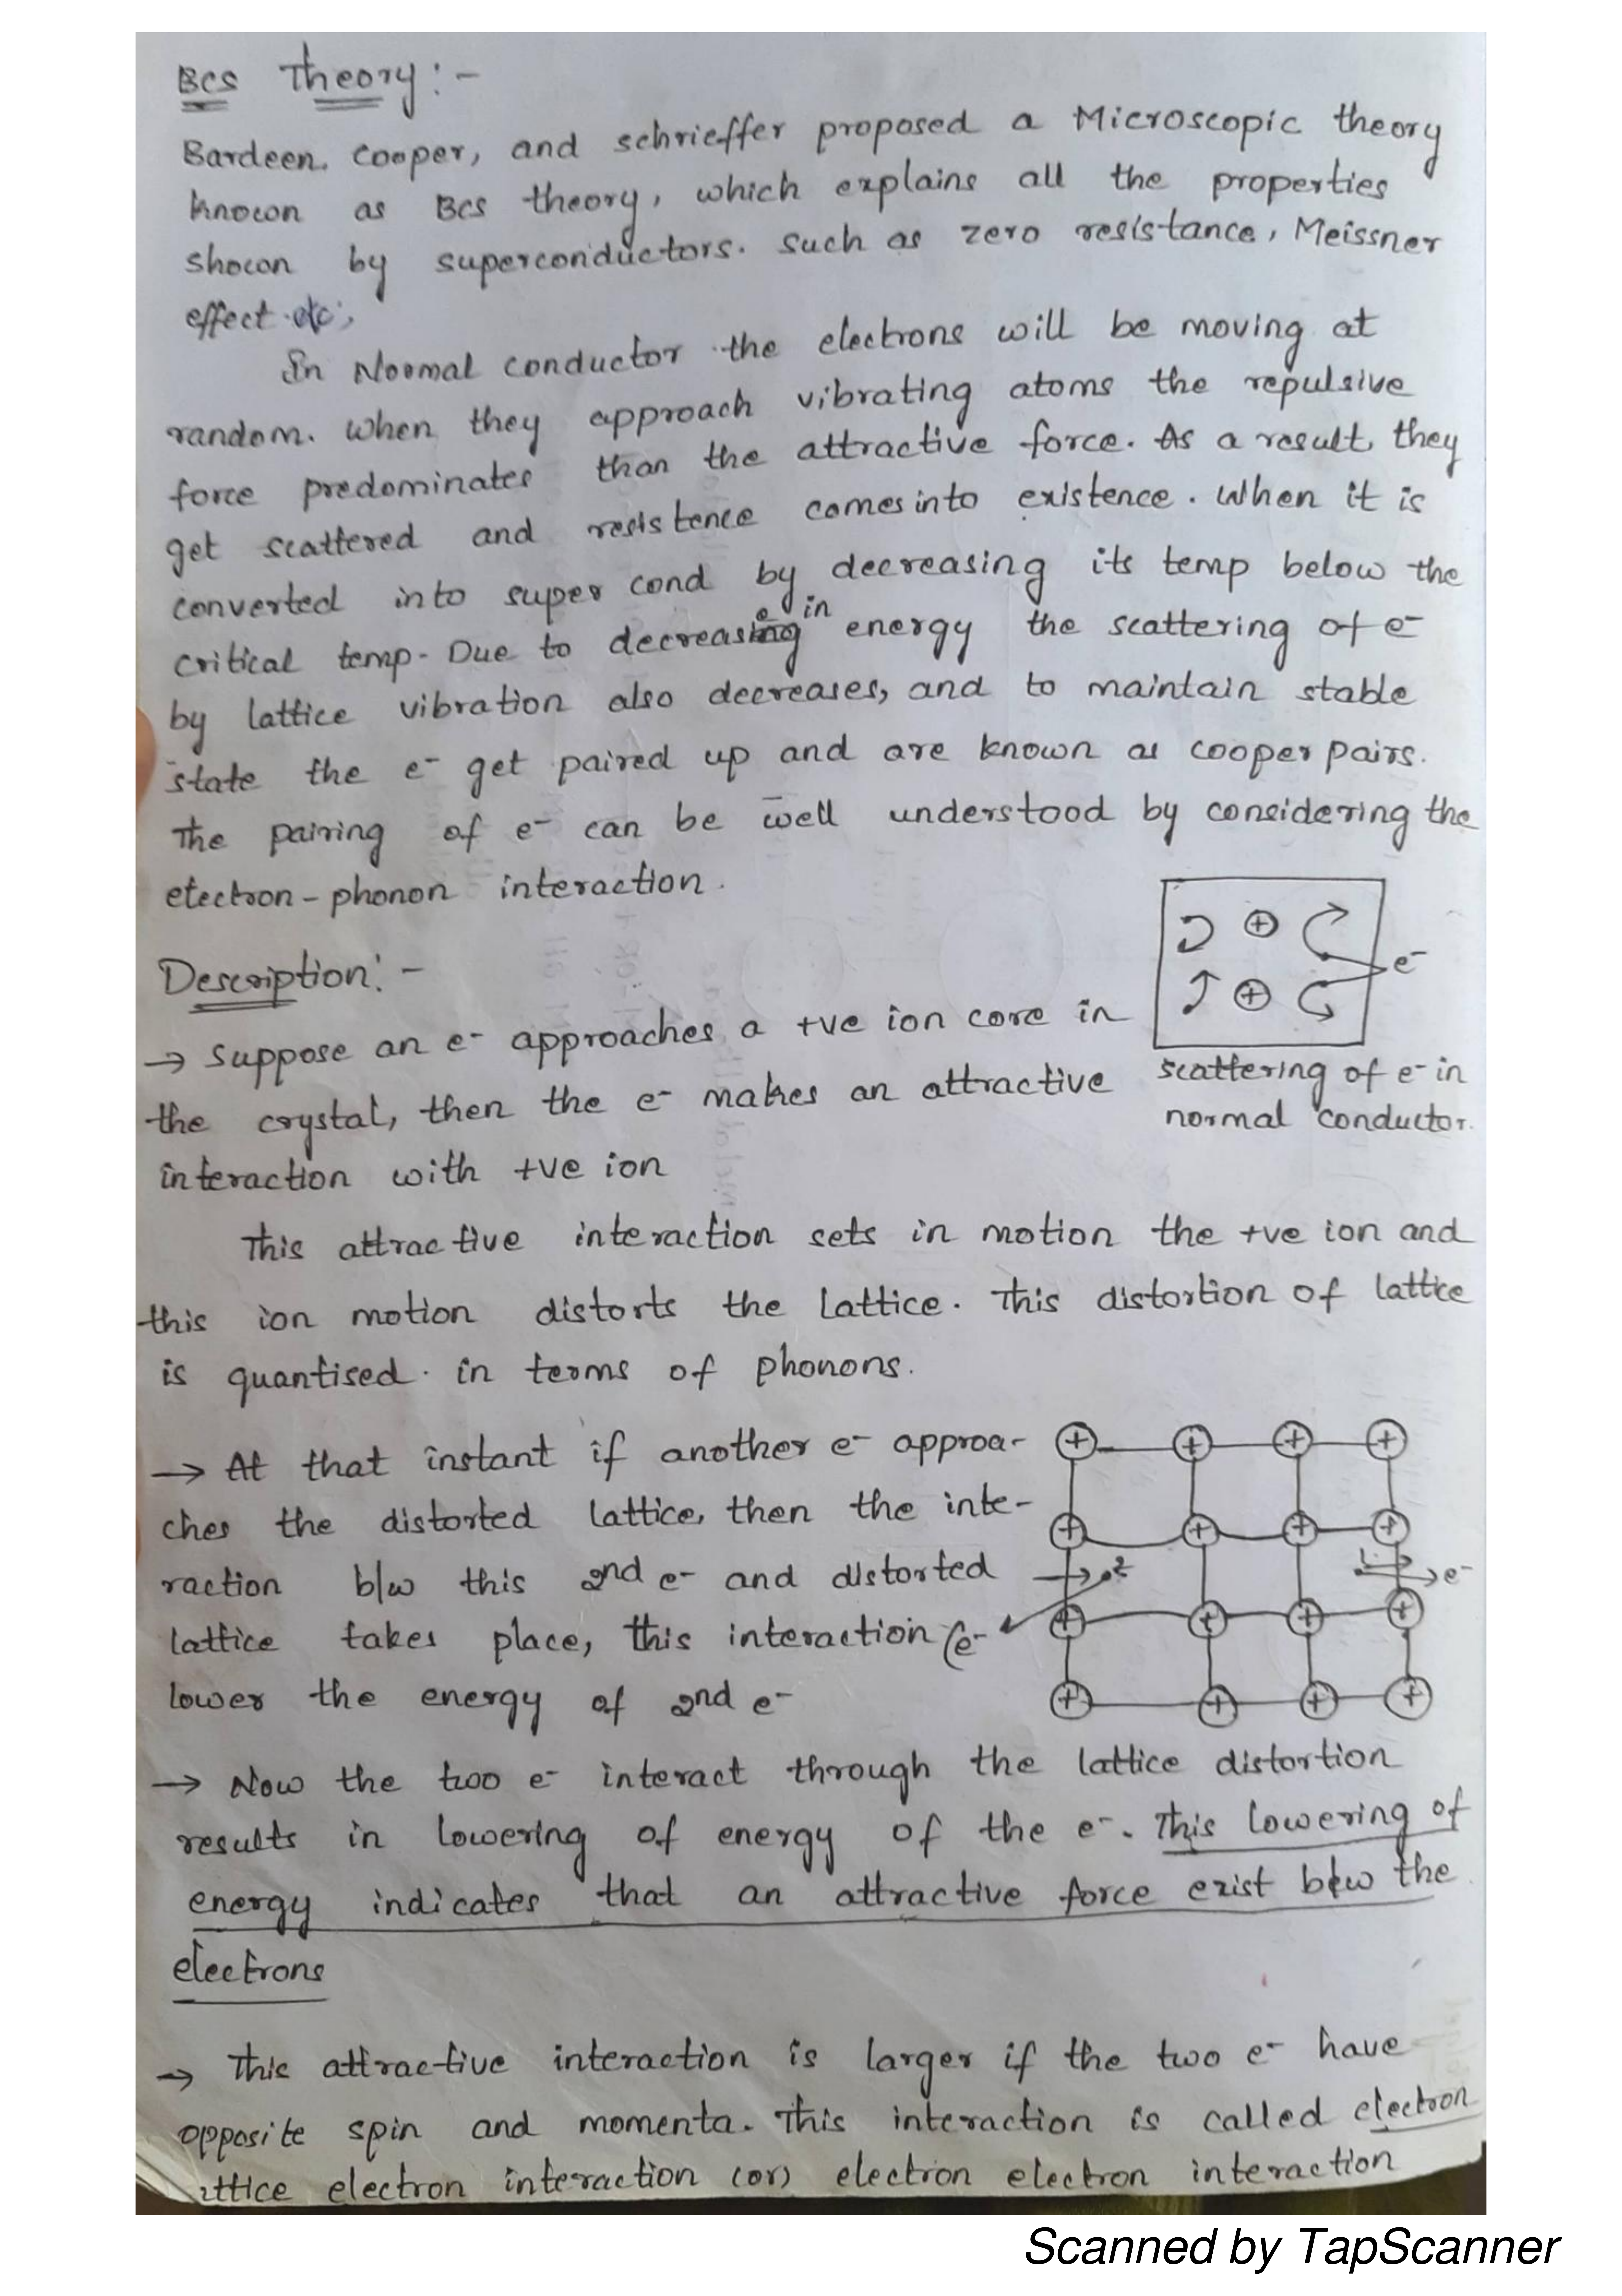 Bcs Theory:-
Bardeen. Cooper, and schrieffer proposed a Microscopic theory
known as Bcs theory, which explains all the properties
shown by superconductors. such as zero resistance, Meissner
effect etc;
In Normal conductor the electrons will be moving at
random. when they approach vibrating atoms the repulsive
force predominates than the attractive force. As a result, they
get scattered and resistence comes into existence. When it is
converted into super cond by decreasing its temp below the
critical temp. Due to decrease in energy the scattering of e-
by lattice vibration also decreases, and to maintain stable
state the e- get paired up and are known as cooper pairs.
The pairing of e- can be well understood by considering the
electron-phonon interaction.
e-
scattering of e- in
normal conductor.
Description:-
→ Suppose an e- approaches a +ve ion core in
the crystal, then the e- makes an attractive
interaction with +ve ion
This attractive interaction sets in motion the +ve ion and
this ion motion distorts the lattice. This distortion of lattice
is quantised. in terms of phonons.
→ At that instant if another e- approa-
ches the distorted lattice, then the inte-
raction b/w this 2nd e- and distorted
lattice takes place, this interaction
lower the energy of 2nd e-
+ + + +
+ + + +
2 1 e-
e- + + + +
+ + + +
→ Now the two e- interact through the lattice distortion
results in lowering of energy of the e-. This lowering of
energy indicates that an attractive force exist b/w the
electrons
→ This attractive interaction is larger if the two e- have
opposite spin and momenta. This interaction is called electron
lattice electron interaction (or) electron electron interaction
Scanned by TapScanner